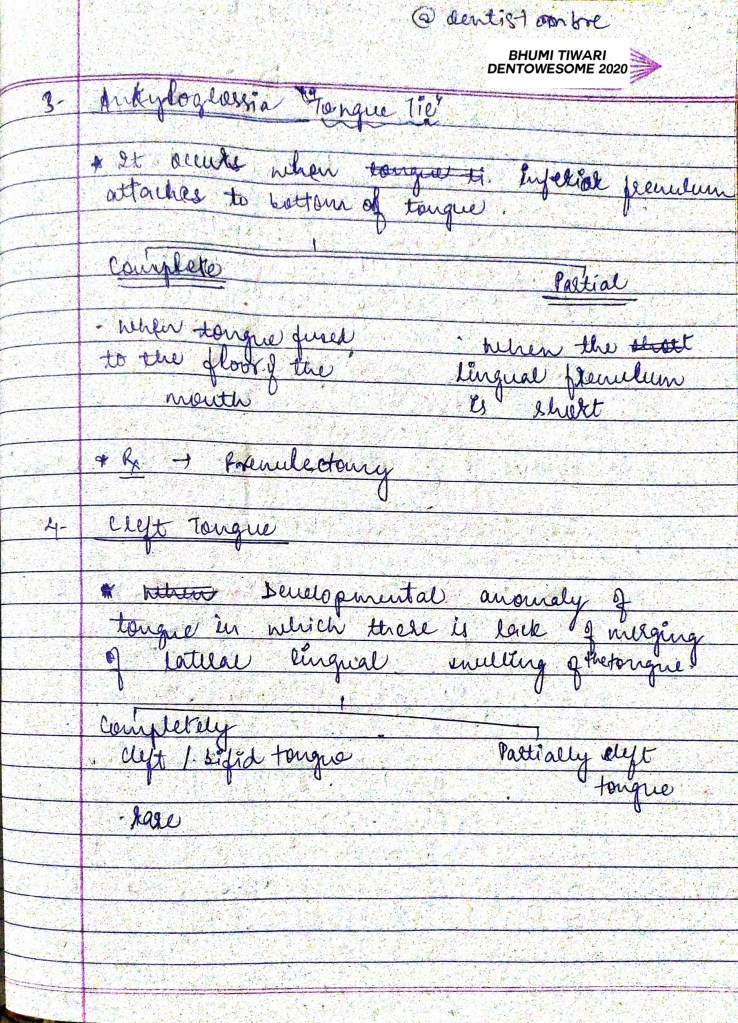 @ dentist ombre
BHUMI TIWARI
DENTOWESOME 2020
3- Ankyloglossia "Tongue Tie"
* It occurs when tongue ti. Inferior frenulum
attaches to bottom of tongue.
Complete
Partial
· when tongue fused
to the floor of the
mouth
· when the short
lingual frenulum
is short
* Rx → Frenulectomy
4- Cleft Tongue
* when Developmental anomaly of
tongue in which there is lack of merging
of lateral lingual swelling of the tongue.
Completely
cleft / bifid tongue
Partially cleft
tongue
· rare